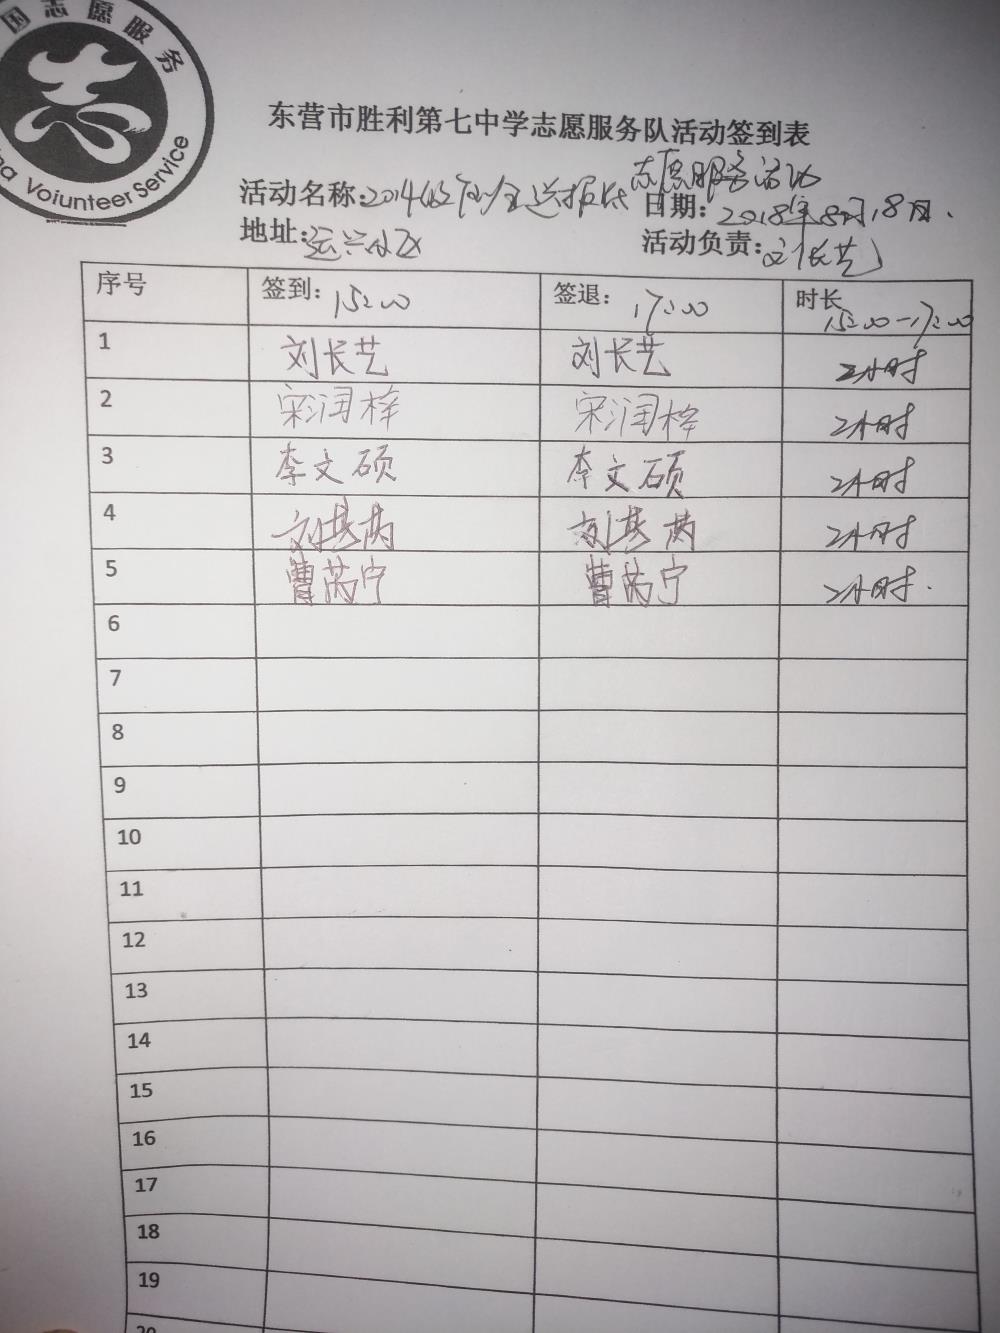 国志愿服务
na Voiunteer Service
东营市胜利第七中学志愿服务队活动签到表
志愿服务活动
活动名称:2014级 日期:2018年8月18日.
地址: 小区 活动负责:刘长艺
序号 签到:15:00 签退:17:00 时长 15:00-17:00
1 刘长艺 刘长艺 2小时
2 宋润梓 宋润梓 2小时
3 李文硕 李文硕 2小时
4 刘 2小时
5 曹芮宁 曹芮宁 2小时.
6
7
8
9
10
11
12
13
14
15
16
17
18
19
20